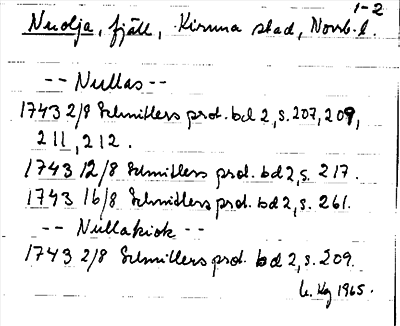 1-2
Nuolja, fjäll, Kiruna stad, Norrb. l.
-- Nullas --
1743 2/8 Schnitlers prot. bd 2, s. 207, 209,
211, 212.
1743 12/8 Schnitlers prot. bd 2, s. 217.
1743 16/8 Schnitlers prot. bd 2, s. 261.
-- Nullakiok --
1743 2/8 Schnitlers prot. bd 2, s. 209.
1965.